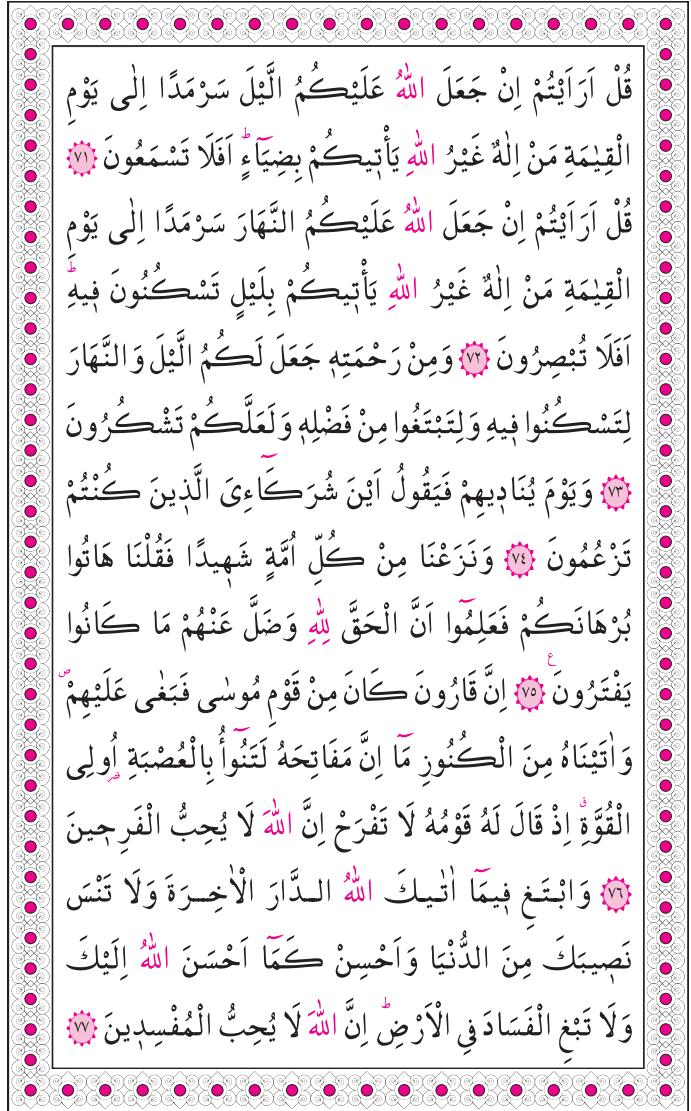 قُلْ اَرَاَيْتُمْ اِنْ جَعَلَ اللّٰهُ عَلَيْكُمُ الَّيْلَ سَرْمَدًا اِلٰى يَوْمِ
الْقِيٰمَةِ مَنْ اِلٰهٌ غَيْرُ اللّٰهِ يَأْت۪يكُمْ بِضِيَٓاءٍۜ اَفَلَا تَسْمَعُونَ ﴿٧١﴾
قُلْ اَرَاَيْتُمْ اِنْ جَعَلَ اللّٰهُ عَلَيْكُمُ النَّهَارَ سَرْمَدًا اِلٰى يَوْمِ
الْقِيٰمَةِ مَنْ اِلٰهٌ غَيْرُ اللّٰهِ يَأْت۪يكُمْ بِلَيْلٍ تَسْكُنُونَ ف۪يهِۜ
اَفَلَا تُبْصِرُونَ ﴿٧٢﴾ وَمِنْ رَحْمَتِه۪ جَعَلَ لَكُمُ الَّيْلَ وَالنَّهَارَ
لِتَسْكُنُوا ف۪يهِ وَلِتَبْتَغُوا مِنْ فَضْلِه۪ وَلَعَلَّكُمْ تَشْكُرُونَ
﴿٧٣﴾ وَيَوْمَ يُنَاد۪يهِمْ فَيَقُولُ اَيْنَ شُرَكَٓاءِيَ الَّذ۪ينَ كُنْتُمْ
تَزْعُمُونَ ﴿٧٤﴾ وَنَزَعْنَا مِنْ كُلِّ اُمَّةٍ شَه۪يدًا فَقُلْنَا هَاتُوا
بُرْهَانَكُمْ فَعَلِمُٓوا اَنَّ الْحَقَّ لِلّٰهِ وَضَلَّ عَنْهُمْ مَا كَانُوا
يَفْتَرُونَ۟ ﴿٧٥﴾ اِنَّ قَارُونَ كَانَ مِنْ قَوْمِ مُوسٰى فَبَغٰى عَلَيْهِمْۖ
وَاٰتَيْنَاهُ مِنَ الْكُنُوزِ مَٓا اِنَّ مَفَاتِحَهُ لَتَنُٓوأُ بِالْعُصْبَةِ اُو۬لِي
الْقُوَّةِۗ اِذْ قَالَ لَهُ قَوْمُهُ لَا تَفْرَحْ اِنَّ اللّٰهَ لَا يُحِبُّ الْفَرِح۪ينَ
﴿٧٦﴾ وَابْتَغِ ف۪يمَٓا اٰتٰيكَ اللّٰهُ الدَّارَ الْاٰخِرَةَ وَلَا تَنْسَ
نَص۪يبَكَ مِنَ الدُّنْيَا وَاَحْسِنْ كَمَٓا اَحْسَنَ اللّٰهُ اِلَيْكَ
وَلَا تَبْغِ الْفَسَادَ فِي الْاَرْضِۜ اِنَّ اللّٰهَ لَا يُحِبُّ الْمُفْسِد۪ينَ ﴿٧٧﴾